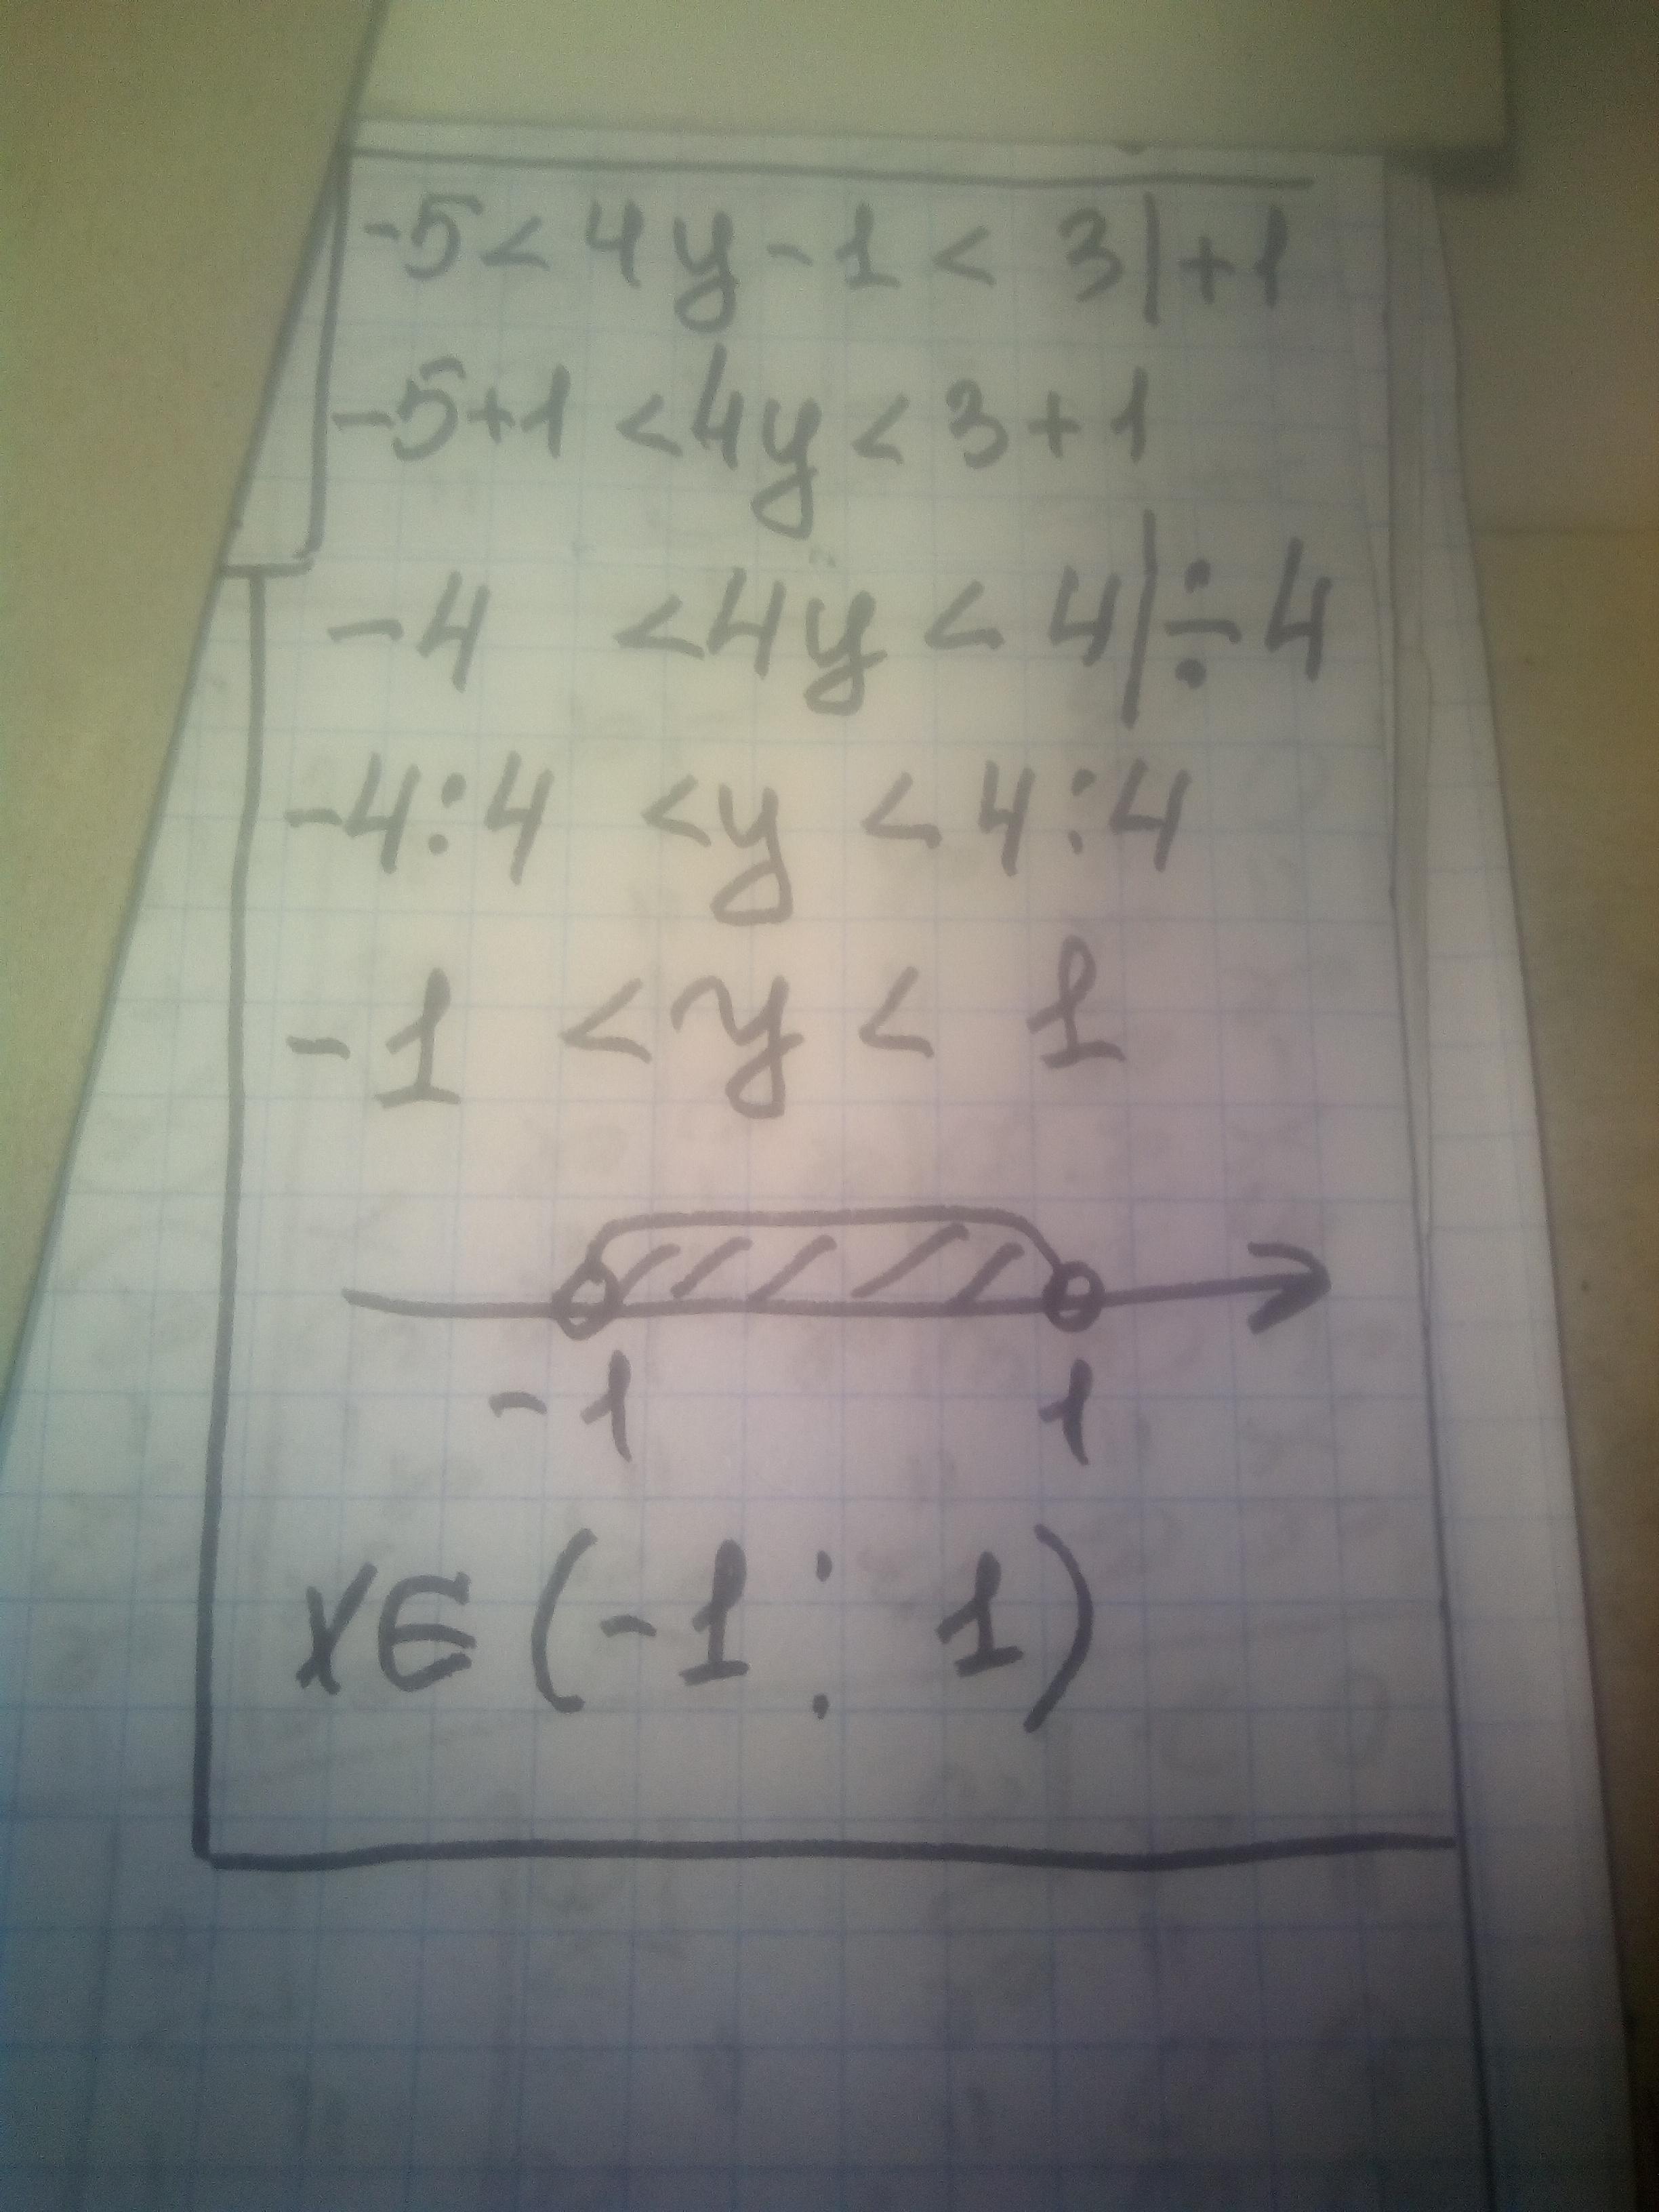 -5 < 4y - 1 < 3 | + 1
-5 + 1 < 4y < 3 + 1
-4 < 4y < 4 | ÷ 4
-4 : 4 < y < 4 : 4
-1 < y < 1
-1 1
x∈ (-1 : 1)